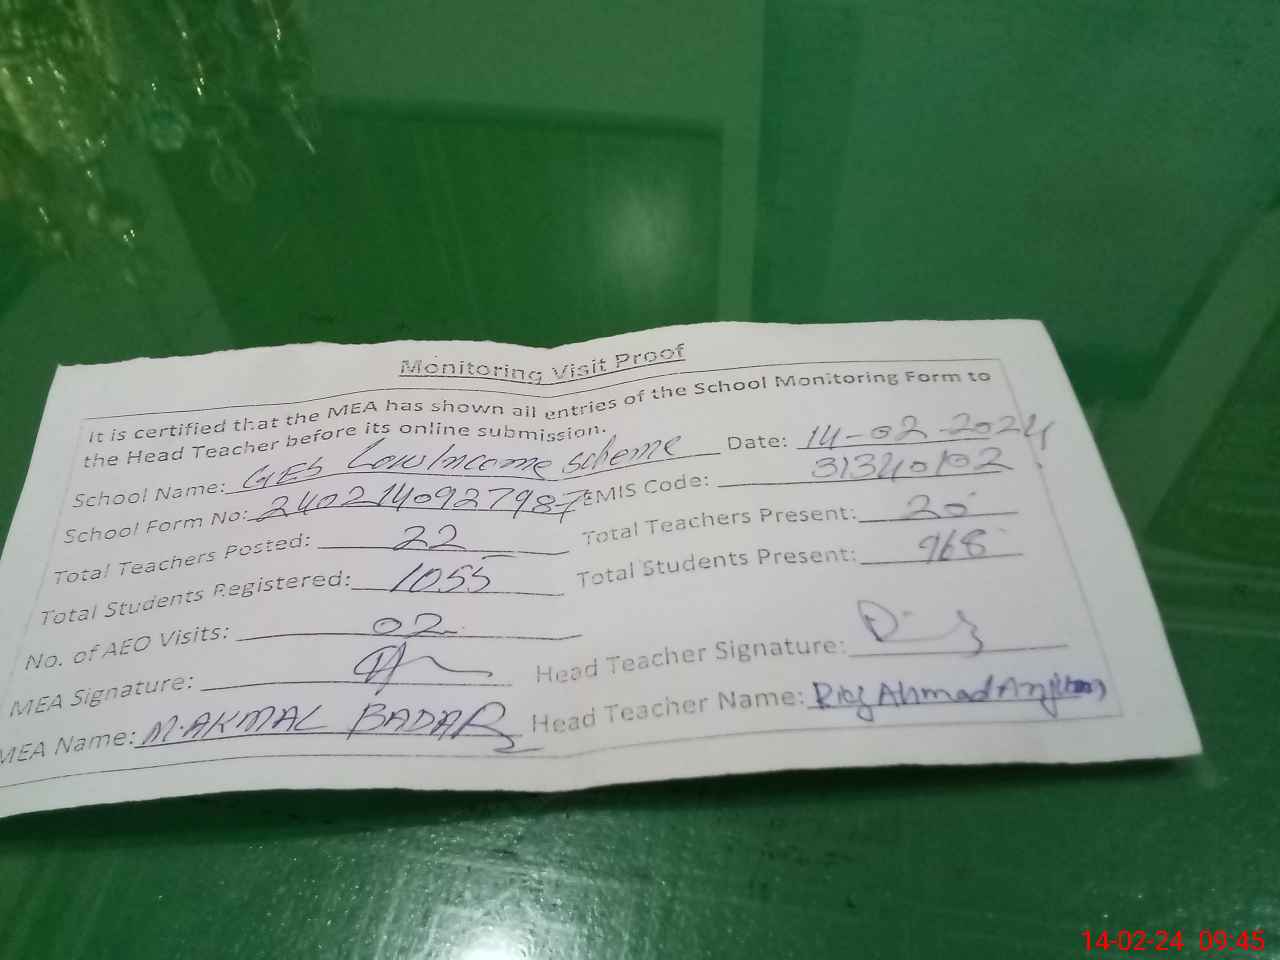 Monitoring Visit Proof
It is certified that the MEA has shown all entries of the School Monitoring Form to
the Head Teacher before its online submission.
School Name: GES Low Income scheme Date: 14-02-2024
School Form No: 2402140927987 EMIS Code: 31340102
Total Teachers Posted: 22 Total Teachers Present: 20
Total Students Registered: 1055 Total Students Present: 968
No. of AEO Visits: 02
MEA Signature: Head Teacher Signature:
MEA Name: M.AKMAL BADAR Head Teacher Name: Riaz Ahmad Anjum
14-02-24 09:45